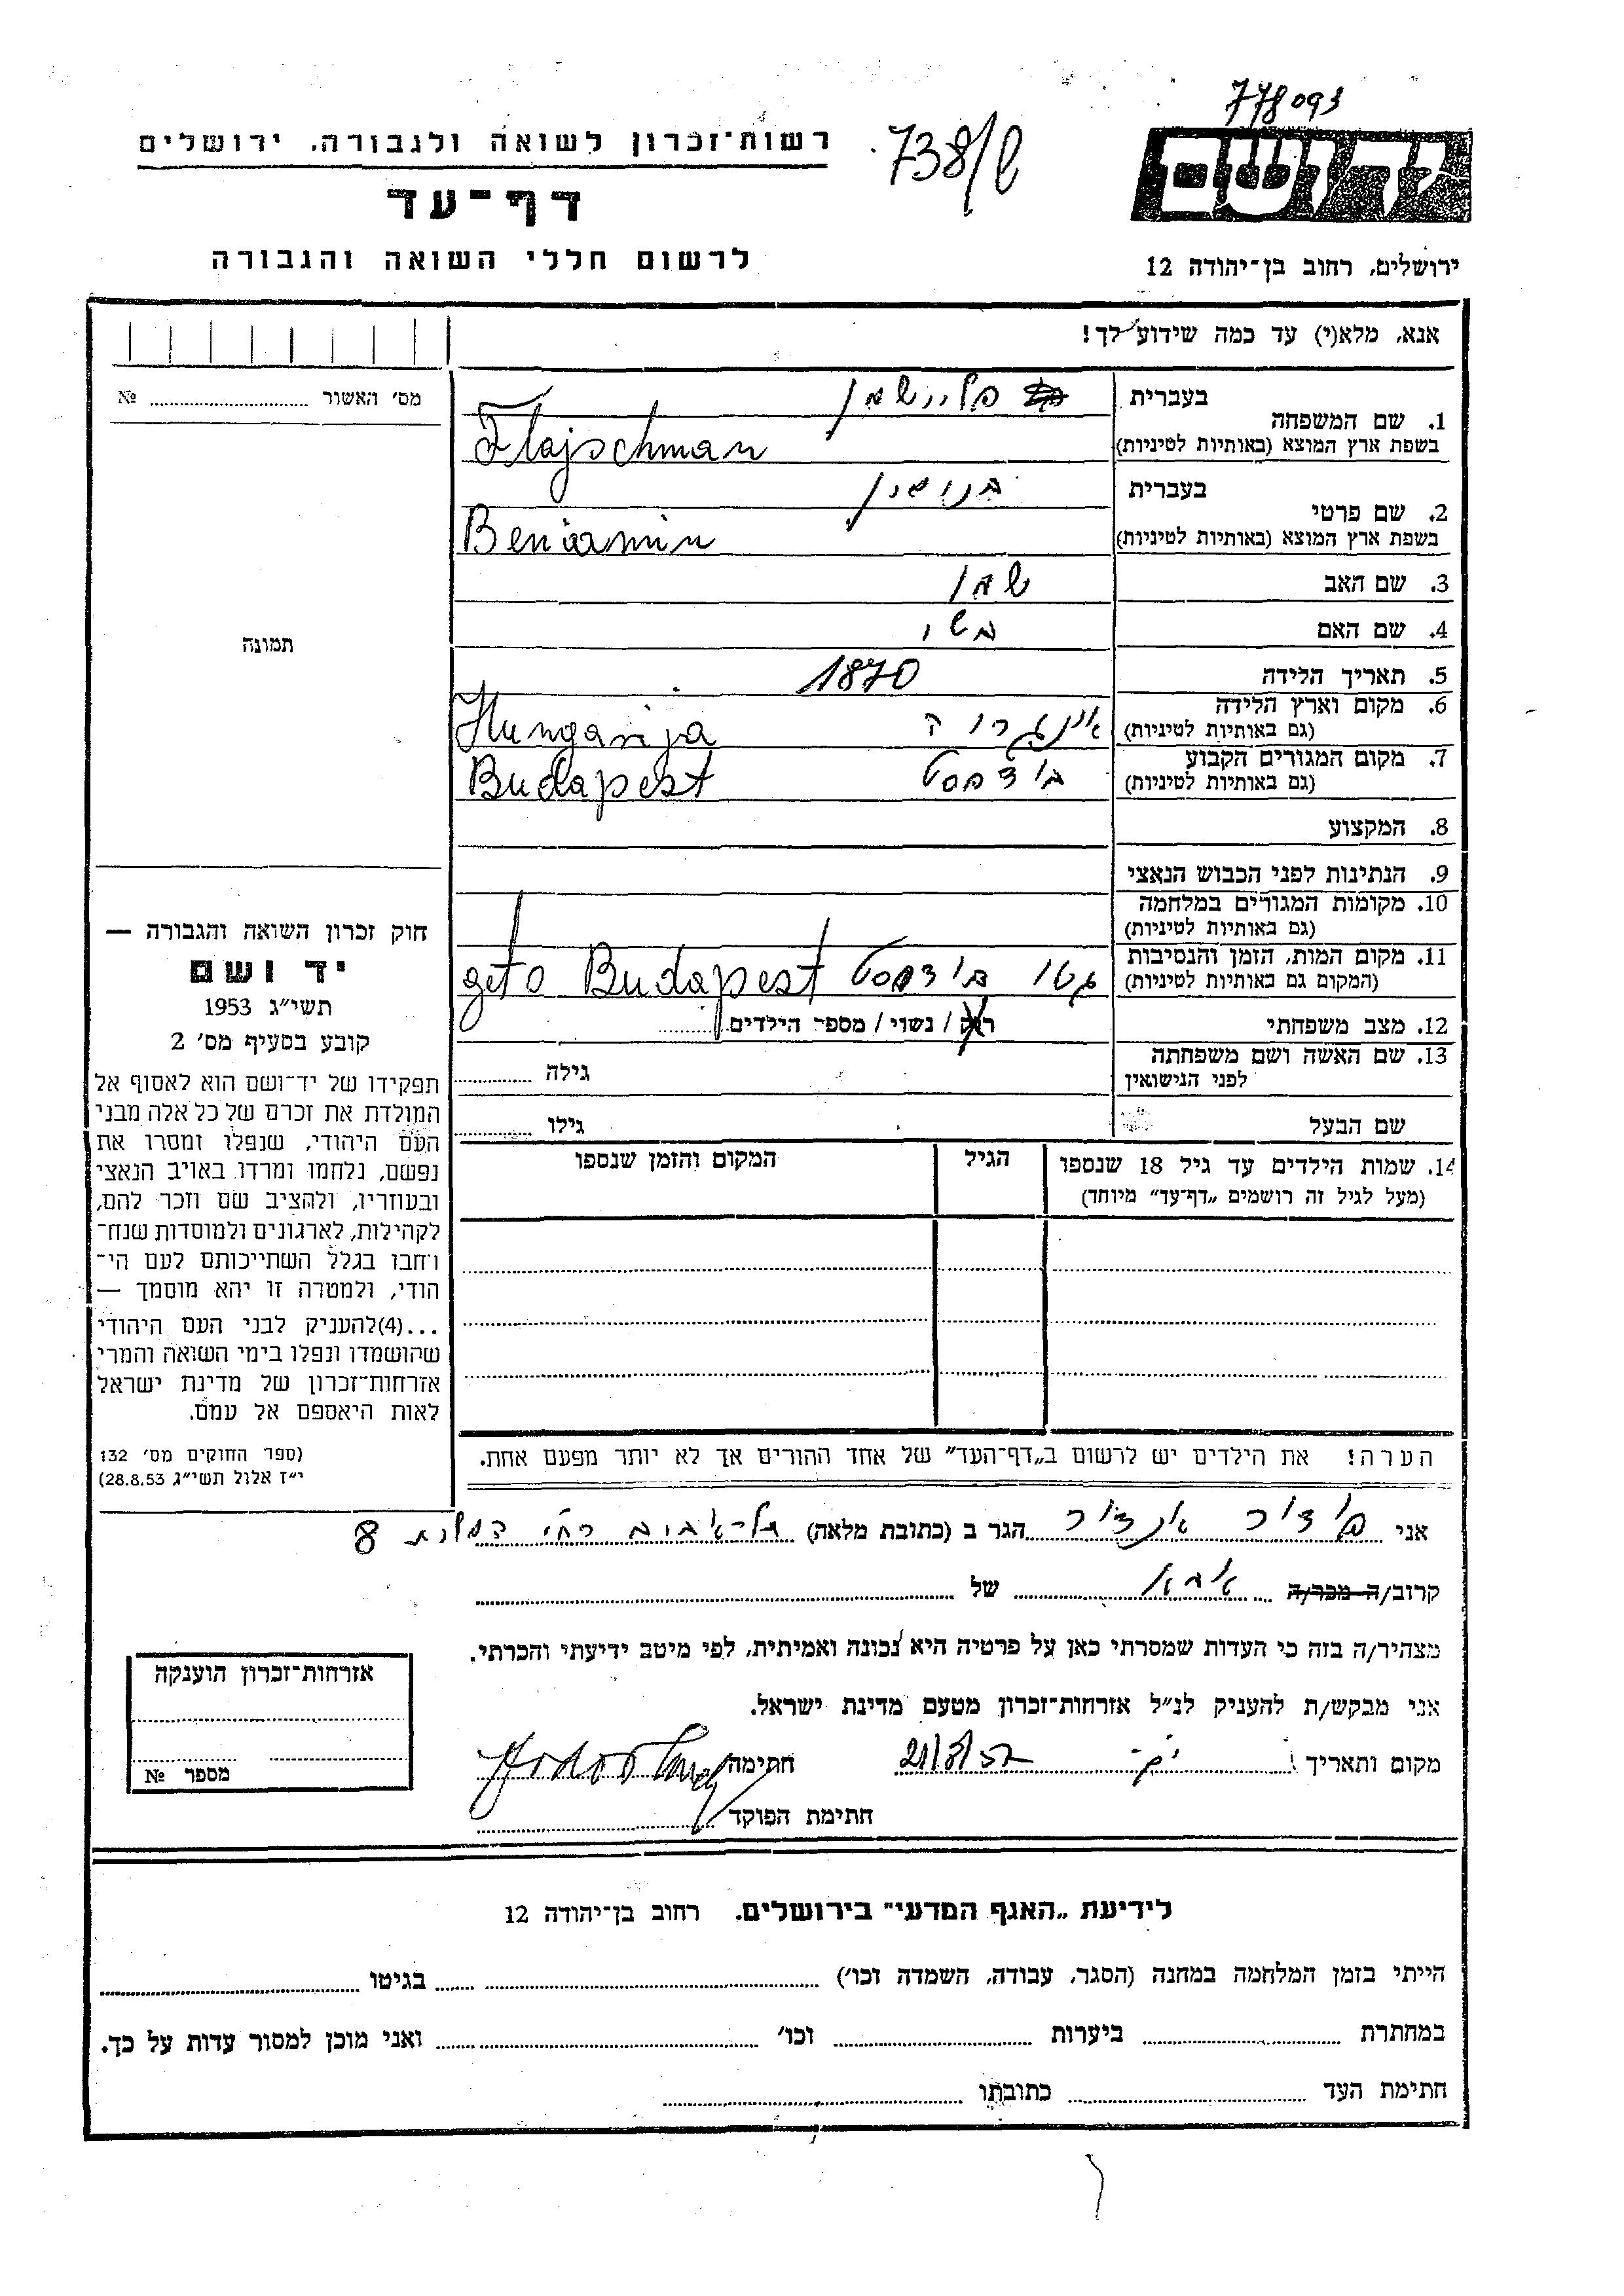 778093
רשות־זכרון לשואה ולגבורה, ירושלים
738/ש
יד ושם
דף־עד
לרשום חללי השואה והגבורה
ירושלים, רחוב בן־יהודה 12
אנא, מלא(י) עד כמה שידוע לך!
מס׳ האשור № 
בעברית
פליישמן
1. שם המשפחה
בשפת ארץ המוצא (באותיות לטיניות)
Flajschman
בעברית
2. שם פרטי
בשפת ארץ המוצא (באותיות לטיניות)
Beniamin
3. שם האב
4. שם האם
תמונה
5. תאריך הלידה 1870
6. מקום וארץ הלידה
(גם באותיות לטיניות)
אונגריה Hungarija
7. מקום המגורים הקבוע
(גם באותיות לטיניות)
בודפסט Budapest
8. המקצוע
9. הנתינות לפני הכבוש הנאצי
10. מקומות המגורים במלחמה
(גם באותיות לטיניות)
11. מקום המות, הזמן והנסיבות
(המקום גם באותיות לטיניות)
גטו בודפסט geto Budapest
12. מצב משפחתי רוק / נשוי / מספר הילדים
13. שם האשה ושם משפחתה
לפני הנישואין
גילה
שם הבעל גילו
14. שמות הילדים עד גיל 18 שנספו
(מעל לגיל זה רושמים „דף־עד” מיוחד)
הגיל
המקום והזמן שנספו
חוק זכרון השואה והגבורה —
יד ושם
תשי״ג 1953
קובע בסעיף מס׳ 2
תפקידו של יד־ושם הוא לאסוף אל
המולדת את זכרם של כל אלה מבני
העם היהודי, שנפלו ומסרו את
נפשם, נלחמו ומרדו באויב הנאצי
ובעוזריו, ולהציב שם וזכר להם,
לקהילות, לארגונים ולמוסדות שנח־
רחבו בגלל השתייכותם לעם הי־
הודי, ולמטרה זו יהא מוסמך —
...(4)להעניק לבני העם היהודי
שהושמדו ונפלו בימי השואה והמרי
אזרחות־זכרון של מדינת ישראל
לאות היאספם אל עמם.
(ספר החוקים מס׳ 132
י״ז אלול תשי״ג 28.8.53)
הערה! את הילדים יש לרשום ב„דף־העד” של אחד ההורים אך לא יותר מפעם אחת.
אני הגר ב (כתובת מלאה) תל־אביב רח׳ 8
קרוב/ה מכר/ה של
מצהיר/ה בזה כי העדות שמסרתי כאן על פרטיה היא נכונה ואמיתית, לפי מיטב ידיעתי והכרתי.
אני מבקש/ת להעניק לנ״ל אזרחות־זכרון מטעם מדינת ישראל.
מקום ותאריך חתימה
חתימת הפוקד
אזרחות־זכרון הוענקה
מספר №
לידיעת „האגף המדעי” בירושלים, רחוב בן־יהודה 12
הייתי בזמן המלחמה במחנה (הסגר, עבודה, השמדה וכו׳) בגיטו
במחתרת ביערות וכו׳ ואני מוכן למסור עדות על כך.
חתימת העד כתובתו